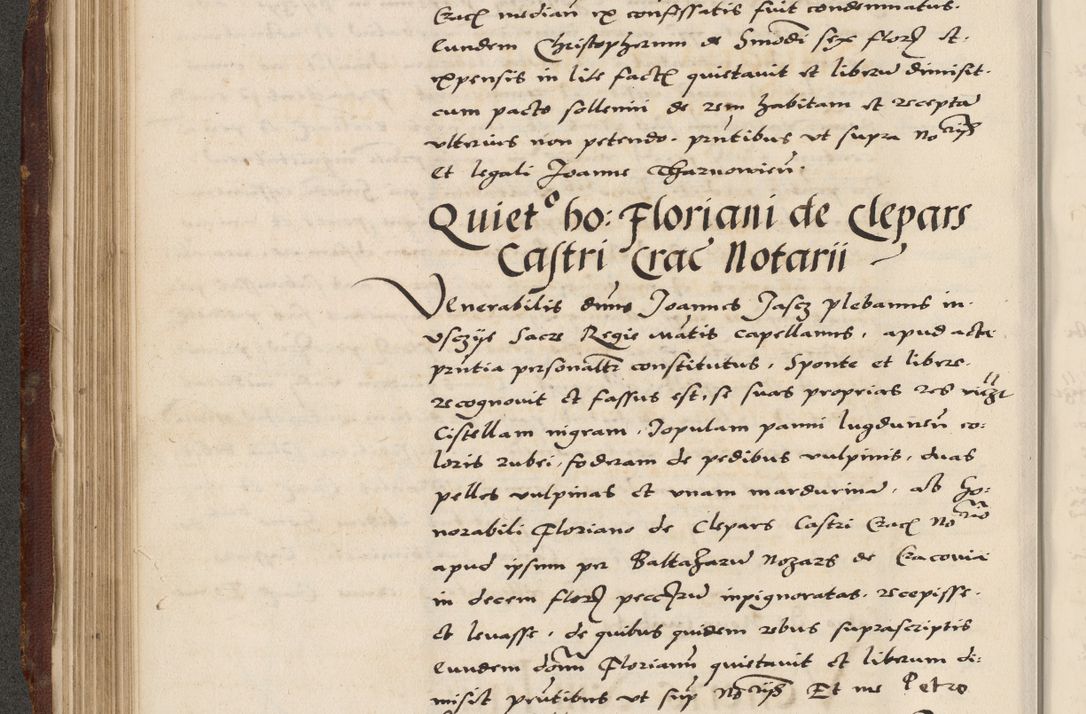 Crac median ex confessatis fuit condemnatus.
Eundem Christopherum de Smodi sex flor et
expensis in lite fact quietavit et liberu dimisit.
cum pacto sollemni de rem habitam et recepta
ulterius non petendo. pntibus ut supra no
Et legali Joanne Tharnowien.
Quiet⁰ ho: Floriani de Clepars
Castri Crac Notarii
Venerabilis dnus Joannes Jasez plebanus in
Usezije Sacre Regie matis capellanus, apud acta
pntia personaltr constitutus, Sponte et libere
recognovit et fassus est, se suas proprias res
Cistellam nigram, Jopulam panni lugdunen co:
loris rubei, foderam de pedibus vulpinis, duas
pelles vulpinas et unam mardurina, ab ho:
norabili Floriano de Clepars Castri Crac no
apud ipsum per Baltazaru Nozars de Cracovia
in decem flor pecc inpignoratas, recepisse
et levasse, de quibus quidem rebus suprascriptis
Eundem donn Florianu quietavit et liberum di:
misit pntibus ut sup Et me Petro